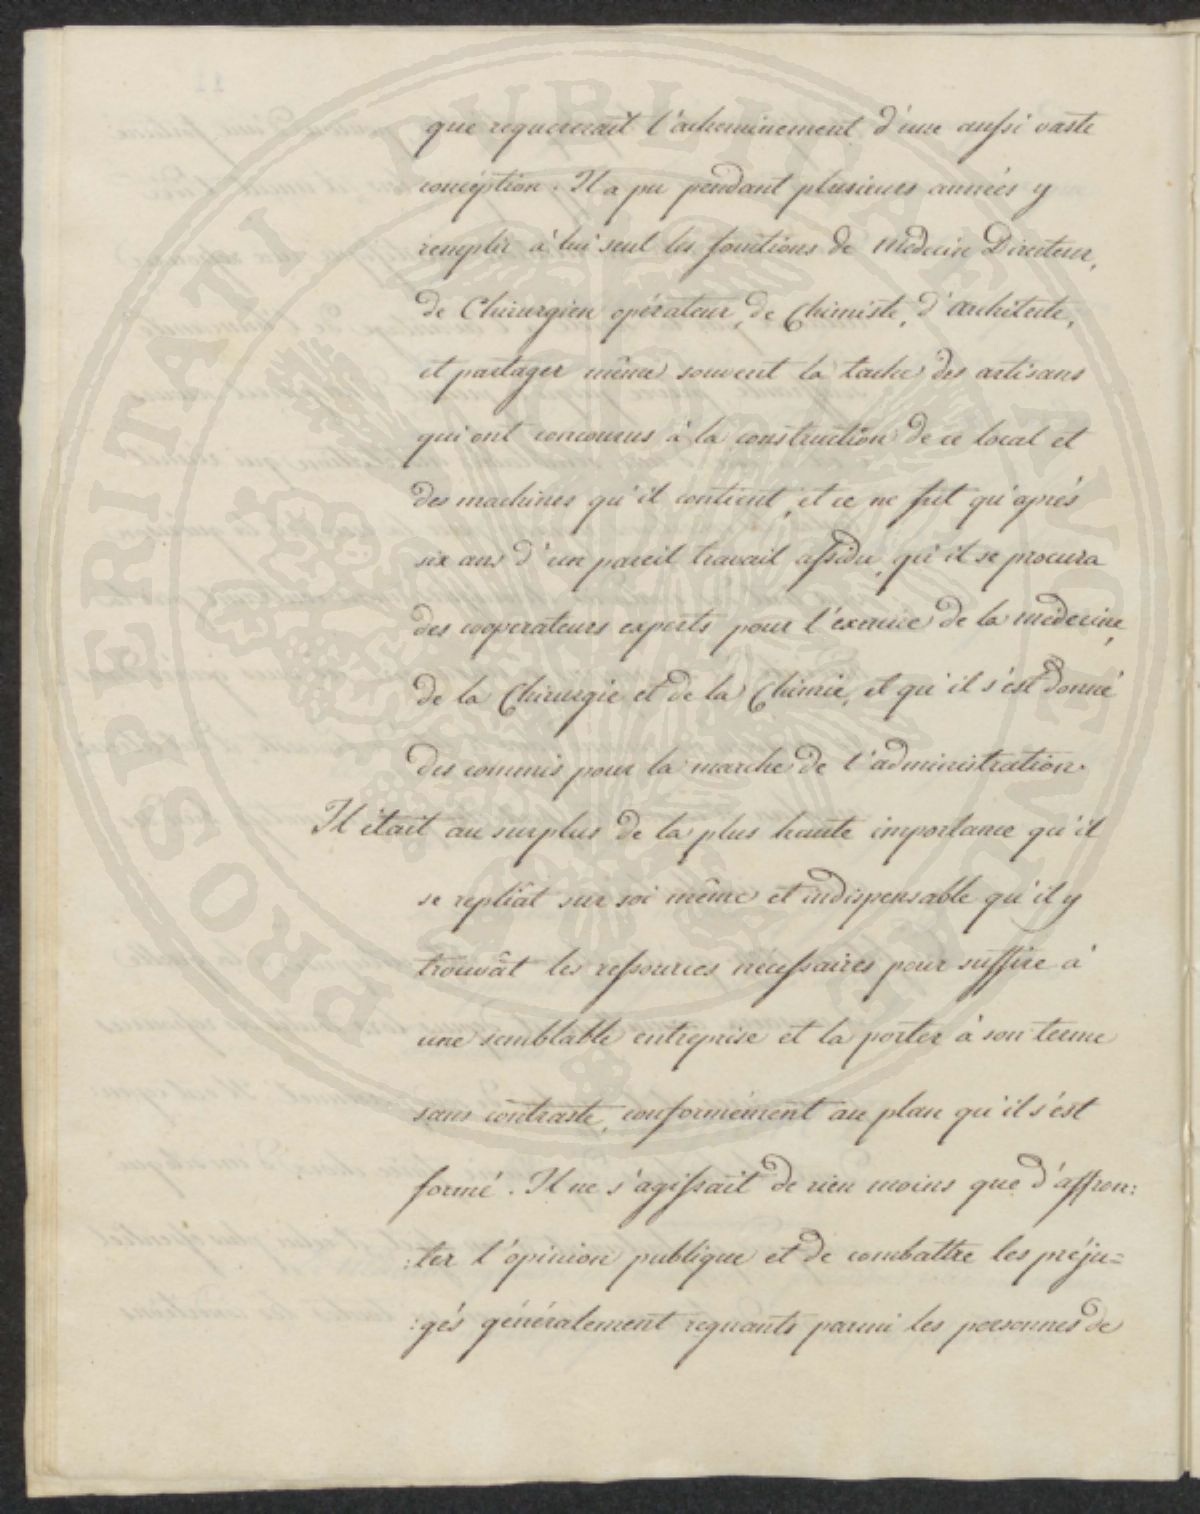 que requererait l'acheminement d'une aussi vaste
conception. Il a pu pendant plusieurs années y
remplir à lui seul les fonctions de Médecin Directeur,
de Chirurgien opérateur, de Chimiste, d'architecte,
et partager même souvent la tache des artisans
qui ont concourus à la construction de ce local et
des machines qu'il contient, et ce ne fut qu'après
six ans d'un pareil travail assidu, qu'il se procura
des cooperateurs experts pour l'exercice de la médecine,
de la Chirurgie et de la Chimie, et qu'il s'est donné
des commis pour la marche de l'administration.
Il était au surplus de la plus haute importance qu'il
se repliât sur soi même et indispensable qu'il y
trouvât les ressources nécessaires pour suffire à
une semblable entreprise et la porter à son terme
sans contraste, conformément au plan qu'il s'est
formé. Il ne s'agissait de rien moins que d'affron:
:ter l'opinion publique et de combattre les préju=
:gés généralement regnants parmi les personnes de
PROSPERITATI PUBLICAE AUGENDAE